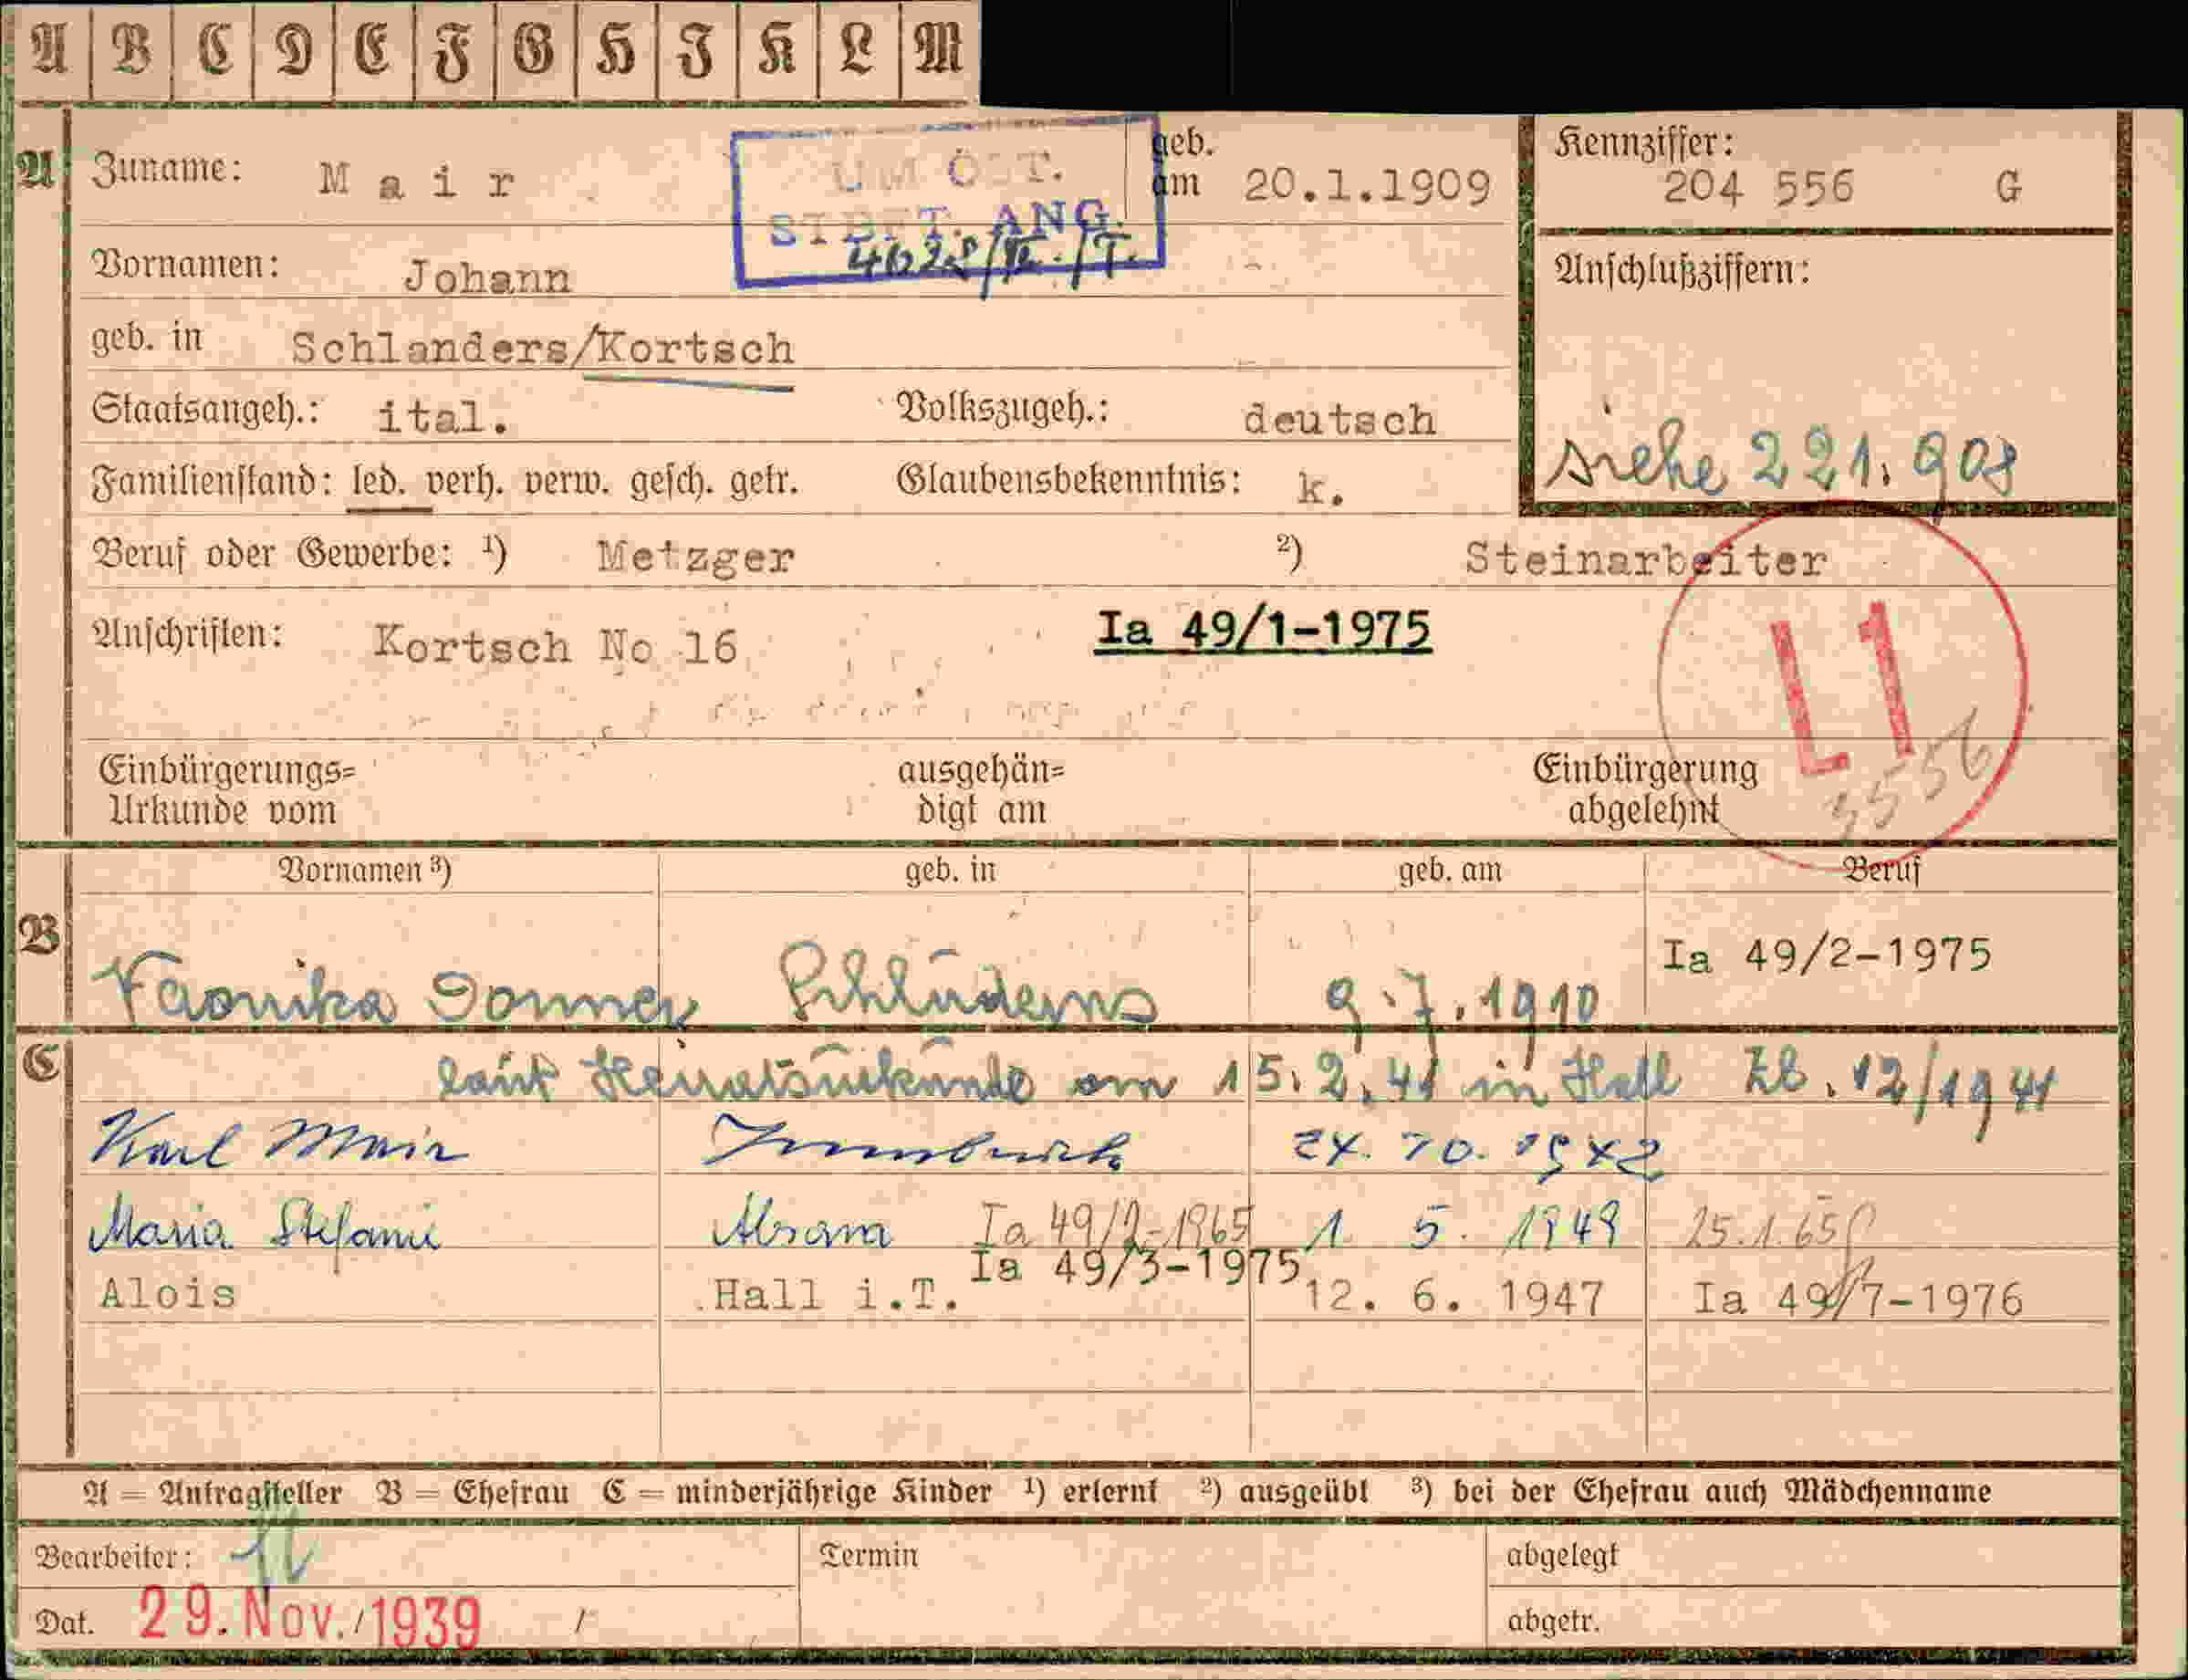 A B C D E F G H I K L M
A Zuname: Mair UM ÖST. STBFT. ANG. geb. am 20.1.1909 Kennziffer: 204 556 G
Vornamen: Johann Anschlußziffern:
geb. in Schlanders/Kortsch
Staatsangeh.: ital. Volkszugeh.: deutsch
siehe 221.908
Familienstand: led. verh. verw. gesch. getr. Glaubensbekenntnis: k.
Beruf oder Gewerbe: ¹) Metzger ²) Steinarbeiter
Anschriften: Kortsch No 16 Ia 49/1-1975
L1
3556
Einbürgerungs= ausgehän= Einbürgerung
Urkunde vom digt am abgelehnt
Vornamen ³) geb. in geb. am Beruf
B
Ia 49/2-1975
Veronika Donner Schluderns 9.7.1910
C laut Heiratsurkunde am 15.2.41 in Hall Zl. 12/1941
Karl Mair Innsbruck 24.10.1942
Maria Stefanie Absam Ia 49/2-1965 1. 5. 1949 25.1.65
Ia 49/3-1975
Alois Hall i.T. 12. 6. 1947 Ia 49/7-1976
A = Antragsteller B = Ehefrau C = minderjährige Kinder ¹) erlernt ²) ausgeübt ³) bei der Ehefrau auch Mädchenname
Bearbeiter: Termin abgelegt
Dat. 29. Nov. 1939 abgetr.